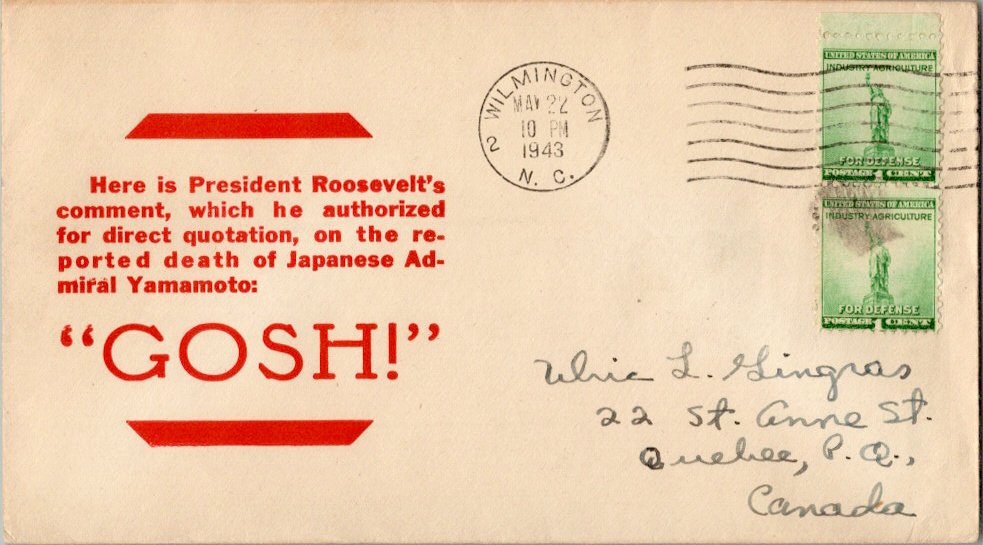 Here is President Roosevelt's
comment, which he authorized
for direct quotation, on the re-
ported death of Japanese Ad-
miral Yamamoto:
"GOSH!"
WILMINGTON
MAY 22
10 PM
1943
N. C.
2
UNITED STATES OF AMERICA
INDUSTRY AGRICULTURE
FOR DEFENSE
POSTAGE 1 CENT
UNITED STATES OF AMERICA
INDUSTRY AGRICULTURE
FOR DEFENSE
POSTAGE 1 CENT
Ulric L. Gingras
22 St. Anne St.
Quebec, P.Q.,
Canada